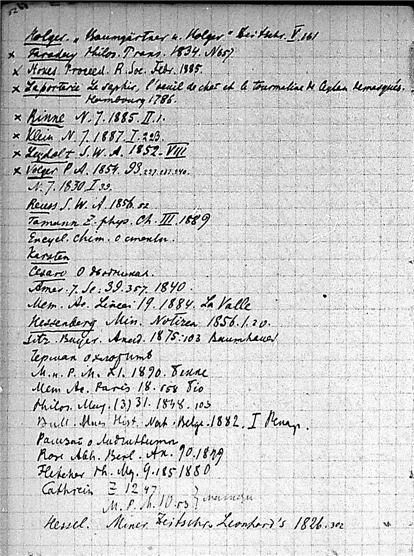 Holger. „Baumgärtner u. Holger" Zeitschr. V. 161
× Faraday Philos. Trans. 1834. N 657
× Jones Proceed. R. Soc. Febr. 1885.
× Laporterie Le saphir, l'oeuil de chat et la tourmaline de Ceylan demasqués.
Hambourg 1786.
× Rinne N. J. 1885. II. 1.
× Klein N. J. 1887. I. 223.
× Leydolt S. W. A. 1852. VIII
× Volger P. A. 1854. 93. 227. 237. 240.
N. J. 1830. I 33.
Reuss S. W. A. 1856.
Tamann Z. phys. Ch. III. 1889
Encycl. chim.
Karsten
Cesaro О двойникал.
Amer. J. Sc. 39. 357. 1840.
Mem. Ac. Lincei 19. 1884. La Valle
Hessenberg Min. Notizen 1856. 1. 20.
Sitz. Bayer. Akad. 1875. 103 Baumhauer
Герман о хлоритѣ
M. u. P. M. XI. 1890. Бекке
Mem Ac. Paris 18. Био
Philos. Mag. (3) 31. 1848. 103
Bull. Mus Hist. Nat. Belge. 1882. I Ренар.
Rose Abh. Berl. Ak.
Fletcher Ph. Mg. 9. 185 1880
Cathrein Z 12 47
M. P. M. 10. 53
Hessel. Miner. Zeitschr. Leonhard's 1826.